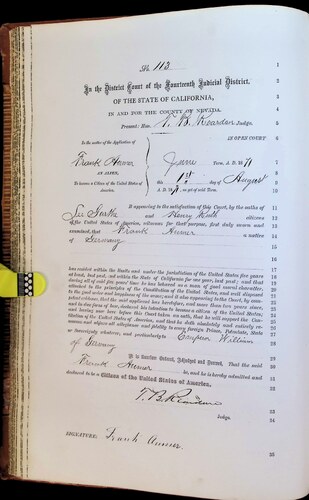 No. 113
In the District Court of the Fourteenth Judicial District,
OF THE STATE OF CALIFORNIA,
IN AND FOR THE COUNTY OF NEVADA.
Present: Hon. T. B. Reardon Judge.
IN OPEN COURT
In the matter of the Application of
Frank
AN ALIEN,
To become a Citizen of the United States of America.
June Term, A. D. 1871
this 1st day of August
A. D. 1871
It appearing to the satisfaction of this Court, by the oaths of
and Henry citizens
of the United States of America, witnesses for that purpose, first duly sworn and
examined, that Frank a native
of Germany
has resided within the limits and under the jurisdiction of the United States five years
at least, last past, and within the State of California for one year, last past; and that
during all of said five years' time he has behaved as a man of good moral character,
attached to the principles of the Constitution of the United States, and well disposed
to the good order and happiness of the same; and it also appearing to the Court, by
and having now here before this Court taken an oath, that he will support the
Constitution of the United States of America, and that he doth absolutely and entirely
renounce and abjure all allegiance and fidelity to every foreign Prince, Potentate, State
or Sovereignty whatever, and particularly to Emperor William
of Germany
It is therefore Ordered, Adjudged and Decreed, That the said
Frank be, and he is hereby admitted and
declared to be a Citizen of the United States of America.
T. B. Reardon
Judge.
SIGNATURE: Frank
1
2
3
4
5
6
7
8
9
10
11
12
13
14
15
16
17
18
19
20
21
22
23
24
25
26
27
28
29
30
31
32
33